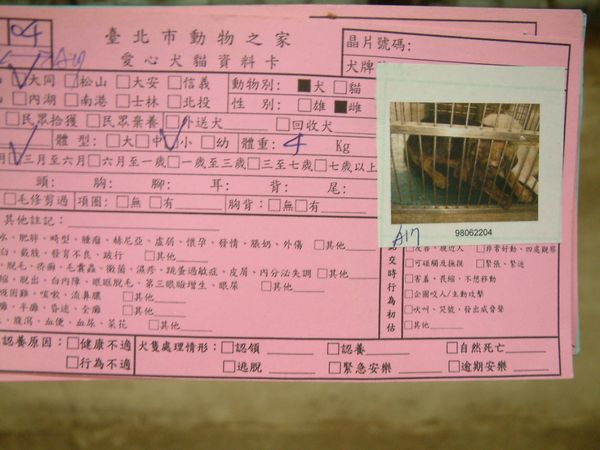 04 臺北市動物之家 晶片號碼:
A17 愛心犬貓資料卡 犬牌
大同 □松山 □大安 □信義 動物別: ■犬 □貓
□內湖 □南港 □士林 □北投 性 別: □雄 ■雌
□民眾拾獲 □民眾棄養 □外送犬 □回收犬
體 型: □大 □中 □小 □幼 體重: 4 Kg
三月至六月 □六月至一歲 □一歲至三歲 □三至七歲 □七歲以上
頭: 胸: 腳: 耳: 背: 尾:
□毛修剪過 項圈: □無 □有 胸背: □無 □有
98062204
A17
其他註記:
水、肥胖、畸型、腫瘤、赫尼亞、虛弱、懷孕、發情、脹奶、外傷 □其他
白、戴脫、發育不良、跛行 □其他
、脫毛、疥癬、毛囊蟲、黴菌、濕疹、跳蚤過敏症、皮屑、內分泌失調 □其他
縮、脫出、白內障、眼眶脫毛、第三眼瞼增生、眼屎 □其他
吸困難、咳嗽、流鼻膿 □其他
、半癱、昏迷、全癱 □其他
、腹瀉、血便、血尿、菜花 □其他
交時行為初估
□友善、親近人 □非常好動、四處觀察
□可碰觸及撫摸 □緊張、緊迫
□害羞、畏縮、不想移動
□企圖咬人/主動攻擊
□吠叫、哭號、發出威脅聲
□其他
認養原因: □健康不適 犬隻處理情形: □認領 □認養 □自然死亡
□行為不適 □逃脫 □緊急安樂 □逾期安樂